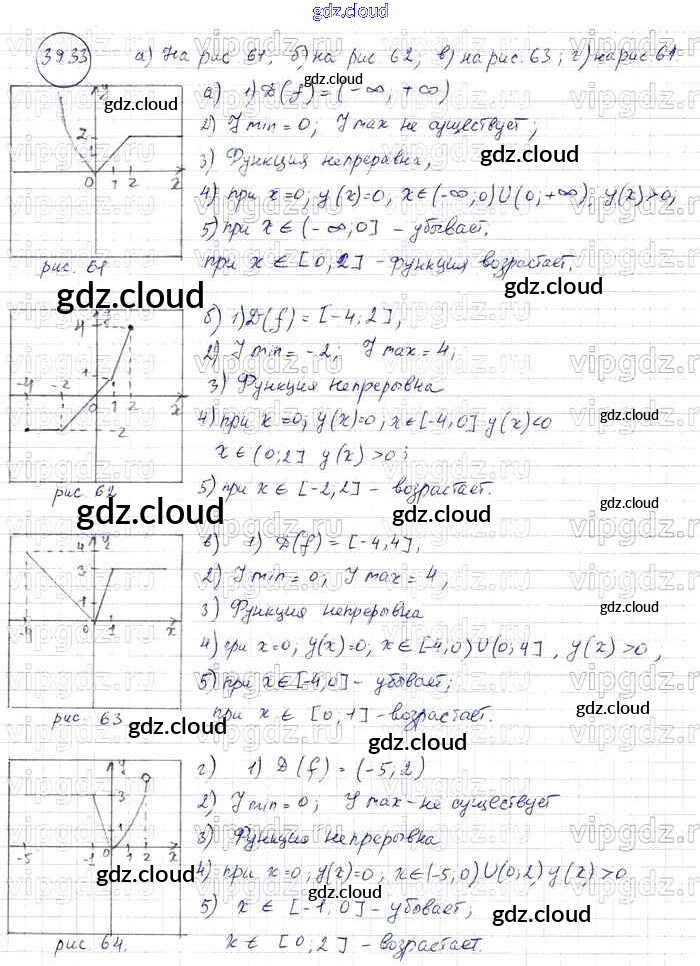 gdz.cloud
39.33 а) На рис 61, б) на рис 62, в) на рис. 63; г) на рис. 61
а) 1) D(f) = (-∞, +∞)
2) Y min = 0; Y max не существует;
3) Функция непреравна,
4) при x=0; y(x)=0, x∈(-∞,0)∪(0,+∞), y(x)>0;
5) при x ∈ (-∞;0] - убывает,
при x ∈ [0,2] - функция возрастает,
y
2
0 1 2 x
рис. 61
gdz.cloud
б) 1) D(f) = [-4,2],
2) Y min = -2; Y max = 4;
3) Функция непрерывна
4) при x=0; y(x)=0, x∈[-4,0] y(x)<0
x∈(0;2] y(x)>0;
5) при x∈ [-2,2] - возрастает.
4 y
-4 -2 1
0 1 2 x
-2
рис 62
gdz.cloud
в) 1) D(f) = [-4,4],
2) Y min = 0; Y max = 4,
3) Функция непрерывна
4) при x=0, y(x)=0, x∈[-4,0)∪(0,4], y(x)>0,
5) при x∈[-4,0] - убывает;
при x ∈ [0,1] - возрастает.
4 y
3
1
-4 0 1 x
рис. 63
gdz.cloud
г) 1) D(f) = (-5,2)
2) Y min = 0; Y max - не существует
3) Функция непрерывна
4) при x=0, y(x)=0, x∈(-5,0)∪(0,2) y(x)>0
5) x ∈ [-1,0] - убывает;
x∈ [0;2] - возрастает.
y
3
1
-5 -1 0 1 2 x
рис. 64.
gdz.cloud
vipgdz.ru